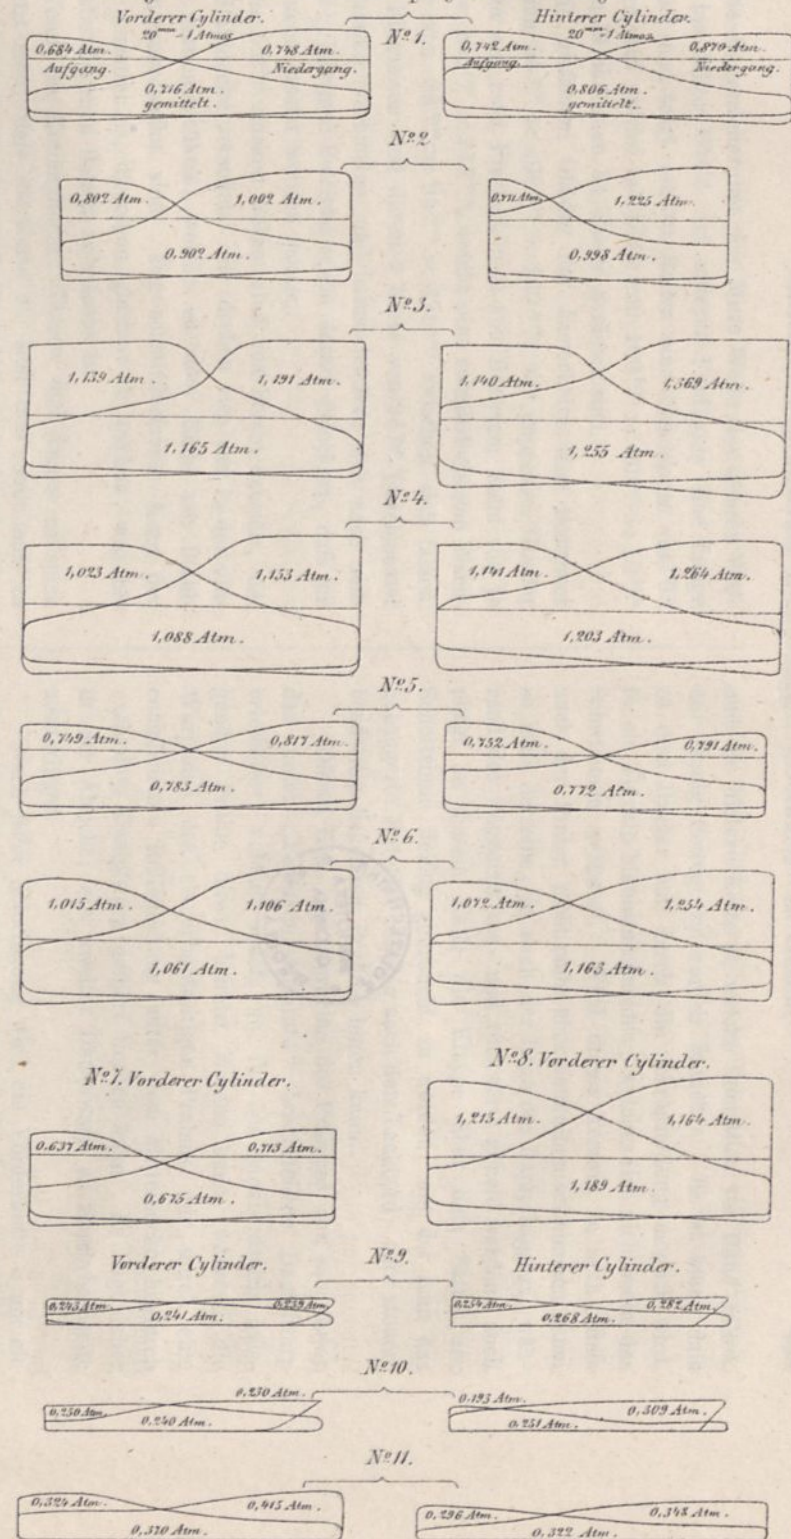 Vorderer Cylinder.
20mm=1 Atmos.
0,684 Atm.
0,748 Atm.
Aufgang.
Niedergang.
0,716 Atm.
gemittelt.
Nº 1.
Hinterer Cylinder.
20mm=1 Atmos.
0,742 Atm.
0,870 Atm.
Aufgang.
Niedergang.
0,806 Atm.
gemittelt.
Nº 2
0,802 Atm.
1,002 Atm.
0,902 Atm.
0,771 Atm.
1,225 Atm.
0,998 Atm.
Nº 3.
1,139 Atm.
1,191 Atm.
1,165 Atm.
1,140 Atm.
1,369 Atm.
1,255 Atm.
Nº 4.
1,023 Atm.
1,153 Atm.
1,088 Atm.
1,141 Atm.
1,264 Atm.
1,203 Atm.
Nº 5.
0,749 Atm.
0,817 Atm.
0,783 Atm.
0,752 Atm.
0,791 Atm.
0,772 Atm.
Nº 6.
1,015 Atm.
1,106 Atm.
1,061 Atm.
1,072 Atm.
1,254 Atm.
1,163 Atm.
Nº 7. Vorderer Cylinder.
0,637 Atm.
0,713 Atm.
0,675 Atm.
Nº 8. Vorderer Cylinder.
1,213 Atm.
1,164 Atm.
1,189 Atm.
Vorderer Cylinder.
Nº 9.
Hinterer Cylinder.
0,243 Atm.
0,239 Atm.
0,241 Atm.
0,254 Atm.
0,282 Atm.
0,268 Atm.
Nº 10.
0,230 Atm.
0,250 Atm.
0,240 Atm.
0,193 Atm.
0,309 Atm.
0,251 Atm.
Nº 11.
0,324 Atm.
0,415 Atm.
0,370 Atm.
0,296 Atm.
0,348 Atm.
0,322 Atm.